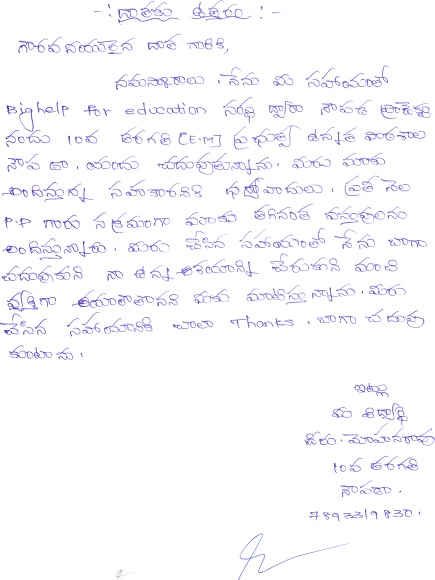 -: దాతకు ఉత్తరం :-
గౌరవనీయులైన దాత గారికి,
నమస్కారాలు. నేను మీ సహాయంతో
Bighelp for education సంస్థ ద్వారా నౌపడ
నందు 10వ తరగతి [E.M] ప్రభుత్వ ఉన్నత పాఠశాల
నౌపడా, యందు చదువుతున్నాను. మీరు మాకు
అందిస్తున్న సహాకారానికి ధన్యవాదులు. ప్రతి నెల
P.P గారు సక్రమంగా మాకు తగినంత వస్తువులను
అందిస్తున్నారు. మీరు చేసిన సహాయంతో నేను బాగా
చదువుకుని నా ఉన్నత ఆశయాన్ని చేరుకుని మంచి
వ్యక్తిగా తయారౌతానని మాట యిస్తున్నాను. మీరు
చేసిన సహాయానికి చాలా Thanks. బాగా చదువు
కుంటాను.
ఇట్లు
మీ విద్యార్థి
మోహనరావు
10వ తరగతి
నౌపడా.
7893319830.